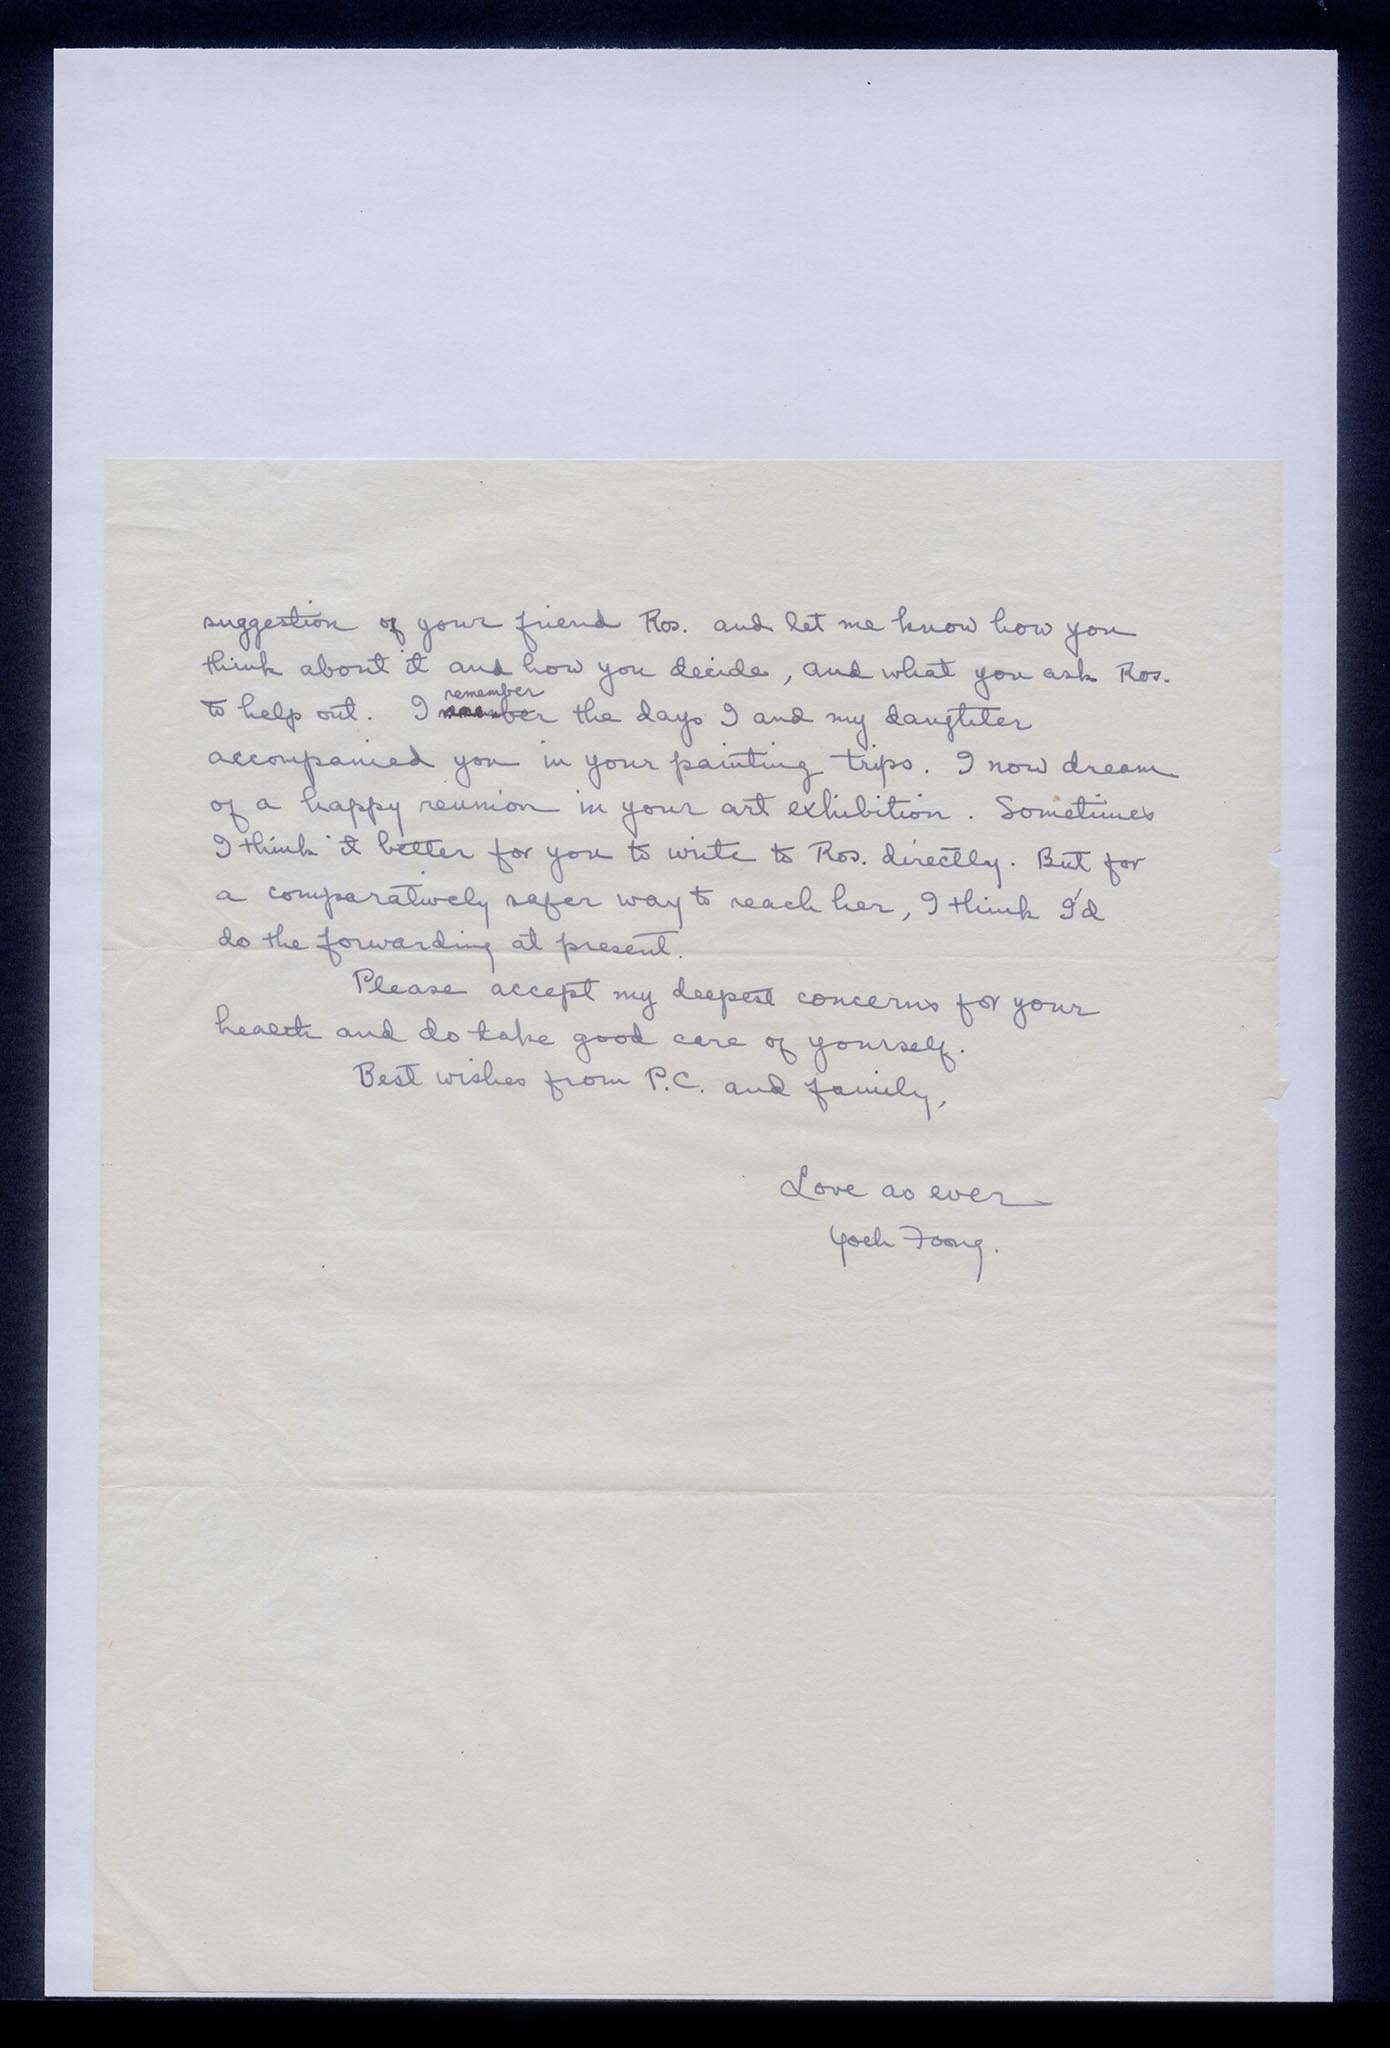 suggestion of your friend Ros. and let me know how you
think about it and how you decide, and what you ask Ros.
to help out. I remember the days I and my daughter
accompanied you in your painting trips. I now dream
of a happy reunion in your art exhibition. Sometimes
I think it better for you to write to Ros. directly. But for
a comparatively safer way to reach her, I think I'd
do the forwarding at present.
Please accept my deepest concerns for your
health and do take good care of yourself.
Best wishes from P.C. and family,
Love as ever
Yoeh Foong.